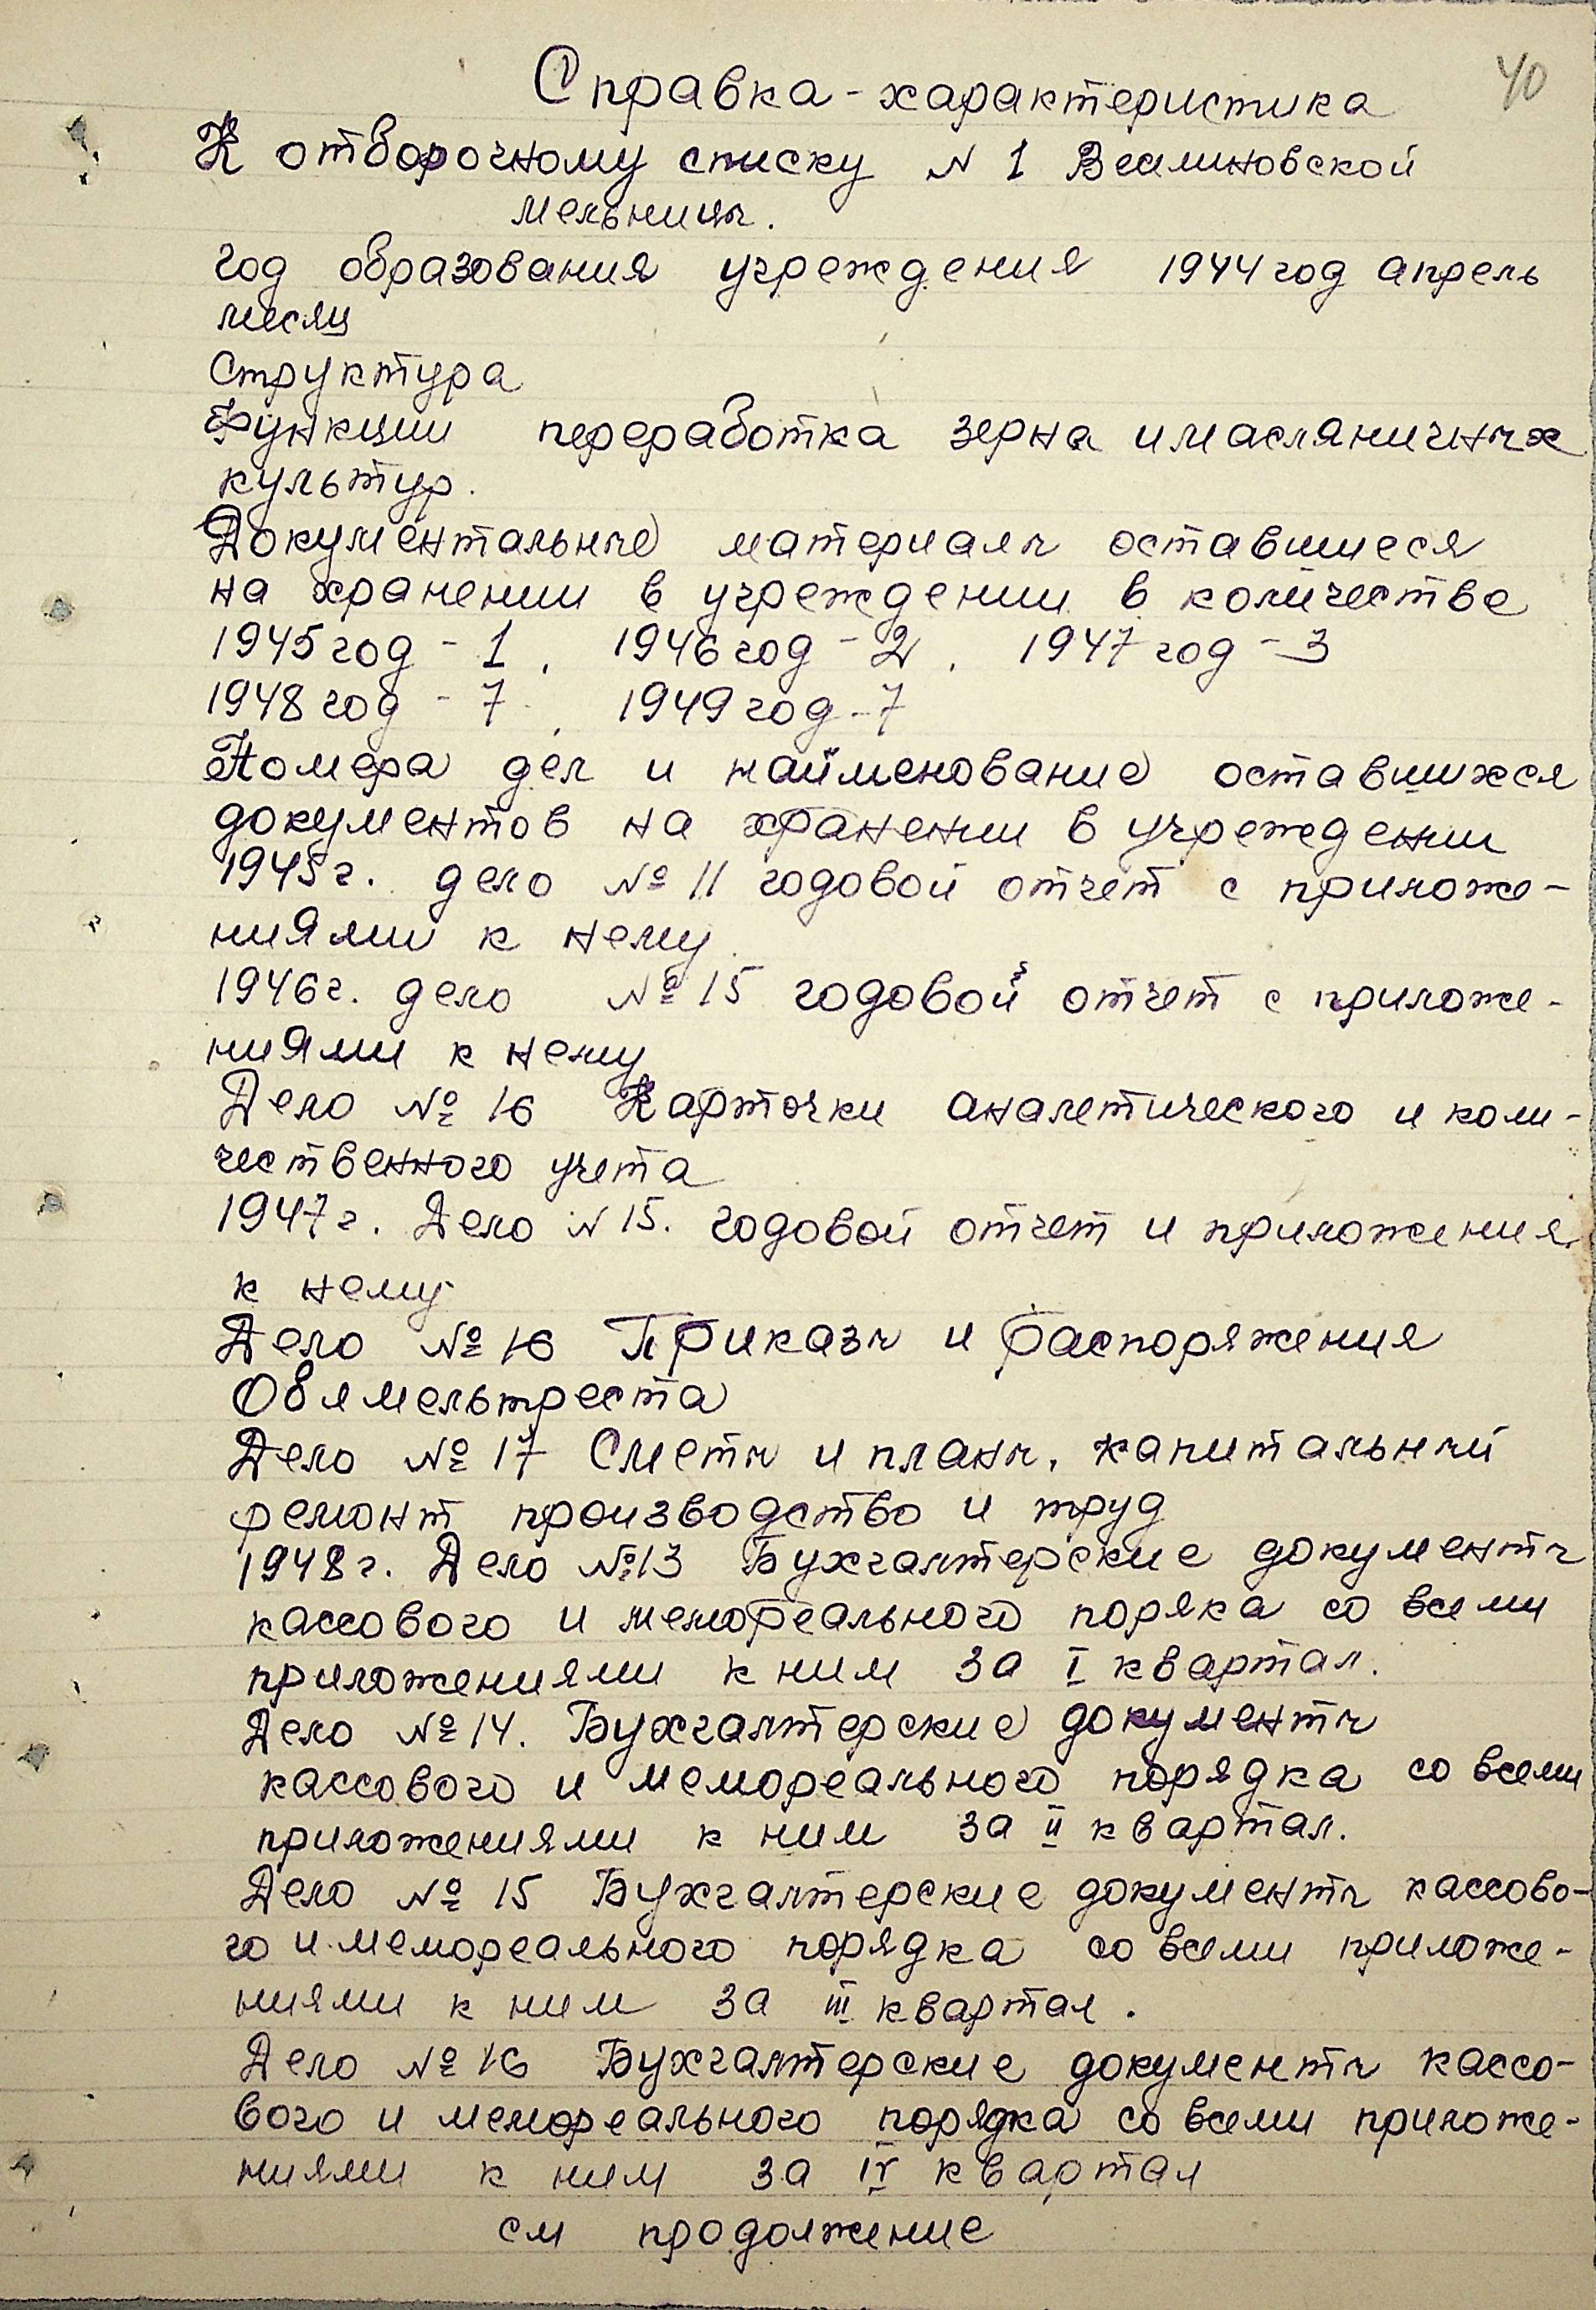 40
Справка - характеристика
К отборочному списку N 1 Веселиновской
мельницы.
год образования учреждения 1944 год апрель
месяц
Структура
Функции переработка зерна и масляничных
культур.
Документальные материалы оставшиеся
на хранении в учреждении в количестве
1945 год - 1, 1946 год - 2, 1947 год - 3
1948 год - 7, 1949 год - 7
Номера дел и найменование оставшихся
документов на хранении в учреждении
1945г. дело № 11 годовой отчет с приложе-
ниями к нему
1946г. дело № 15 годовой отчет с приложе-
ниями к нему
Дело № 16 Карточки аналетического и коли-
чественного учета
1947г. Дело N 15. годовой отчет и приложения
к нему
Дело № 16 Приказы и распоряжения
Облмельтреста
Дело № 17 Сметы и планы, капитальный
ремонт производство и труд
1948г. Дело №13 Бухгалтерские документы
кассового и мемореального поряка со всеми
приложениями к ним за I квартал.
Дело № 14. Бухгалтерские документы
кассового и мемореального порядка со всеми
приложениями к ним за II квартал.
Дело № 15 Бухгалтерские документы кассово-
го и мемореального порядка со всеми приложе-
ниями к ним за III квартал.
Дело № 16 Бухгалтерские документы кассо-
вого и мемореального порядка со всеми приложе-
ниями к ним за IV квартал
см продолжение